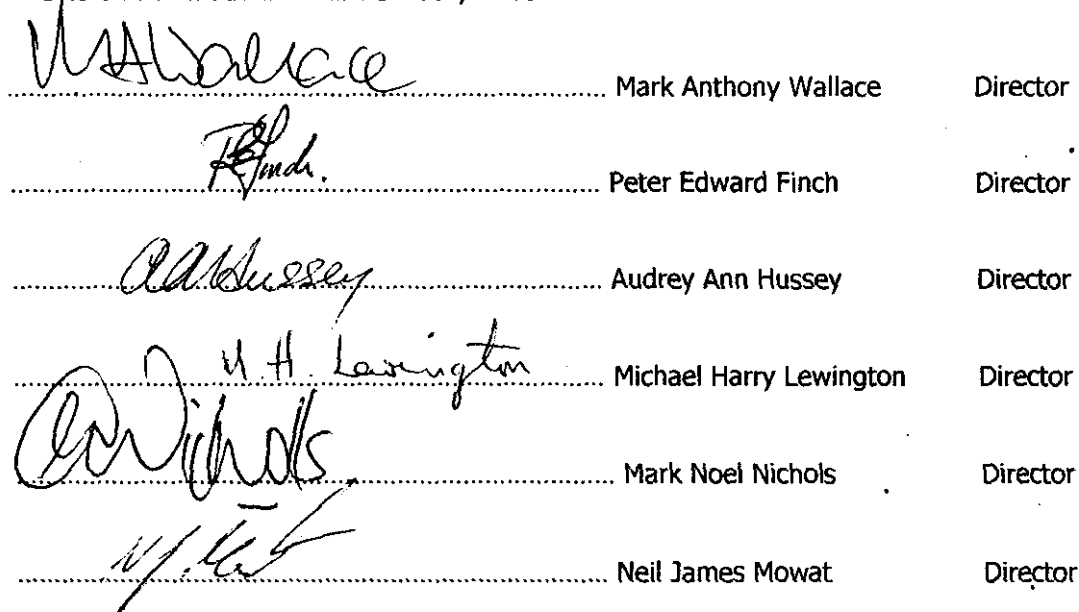 MAWallace Mark Anthony Wallace Director
PEFinch. Peter Edward Finch Director
AAHussey Audrey Ann Hussey Director
M. H. Lewington Michael Harry Lewington Director
Nichols Mark Noel Nichols Director
Neil James Mowat Director